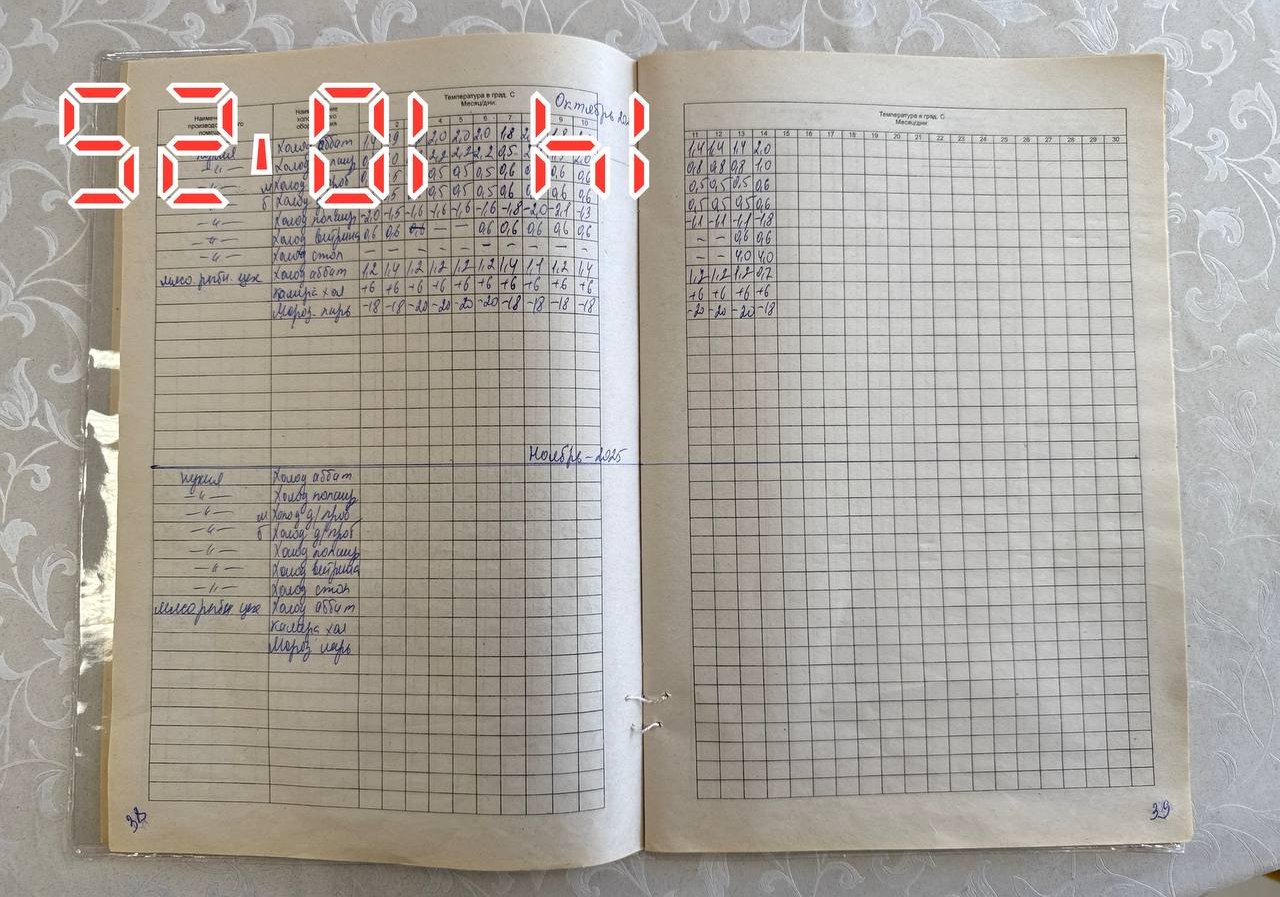 52.01 HI
Температура в град. С
Месяц/дни:
Октябрь
4 5 6 7 9 10
кухня Холод аббат 2,0 2,0 2,0 1,8
—"— Холод 2,2 0,5
—"— м Холод 0,5 0,5 0,6 0,6 0,6
—"— б Холод 0,5 0,5 0,5 0,6 0,6 0,6
—"— Холод -2,0 -1,5 -1,6 -1,6 -1,6 -1,6 -1,8 -2,0 -2,1 -1,3
—"— Холод витрина 0,6 0,6 0,6 — — 0,6 0,6 0,6 0,6 0,6
—"— Холод стол – – – – – – – – –
мясо рыбн. цех Холод аббат 1,2 1,4 1,2 1,2 1,2 1,2 1,4 1,1 1,2 1,4
камера хол +6 +6 +6 +6 +6 +6 +6 +6 +6 +6
Мороз. ларь -18 -18 -20 -20 -20 -20 -18 -18 -18 -18
Ноябрь – 2025
кухня Холод аббат
—"— Холод
—"— м Холод д/проб
—"— б Холод д/проб
—"— Холод
—"— Холод витрина
—"— Холод стол
мясо рыбн цех Холод аббат
камера хол
Мороз ларь
38
Температура в град. С
Месяц/дни:
11 12 13 14 15 16 17 18 19 20 21 22 23 24 25 26 27 28 29 30
1,4 1,4 1,4 2,0
0,8 0,8 0,8 1,0
0,5 0,5 0,5 0,6
0,5 0,5 0,5 0,6
-1,1 -1,1 -1,1 -1,8
– – 0,6 0,6
– – 4,0 4,0
1,2 1,2 1,2 0,2
+6 +6 +6 +6
-20 -20 -20 -18
39